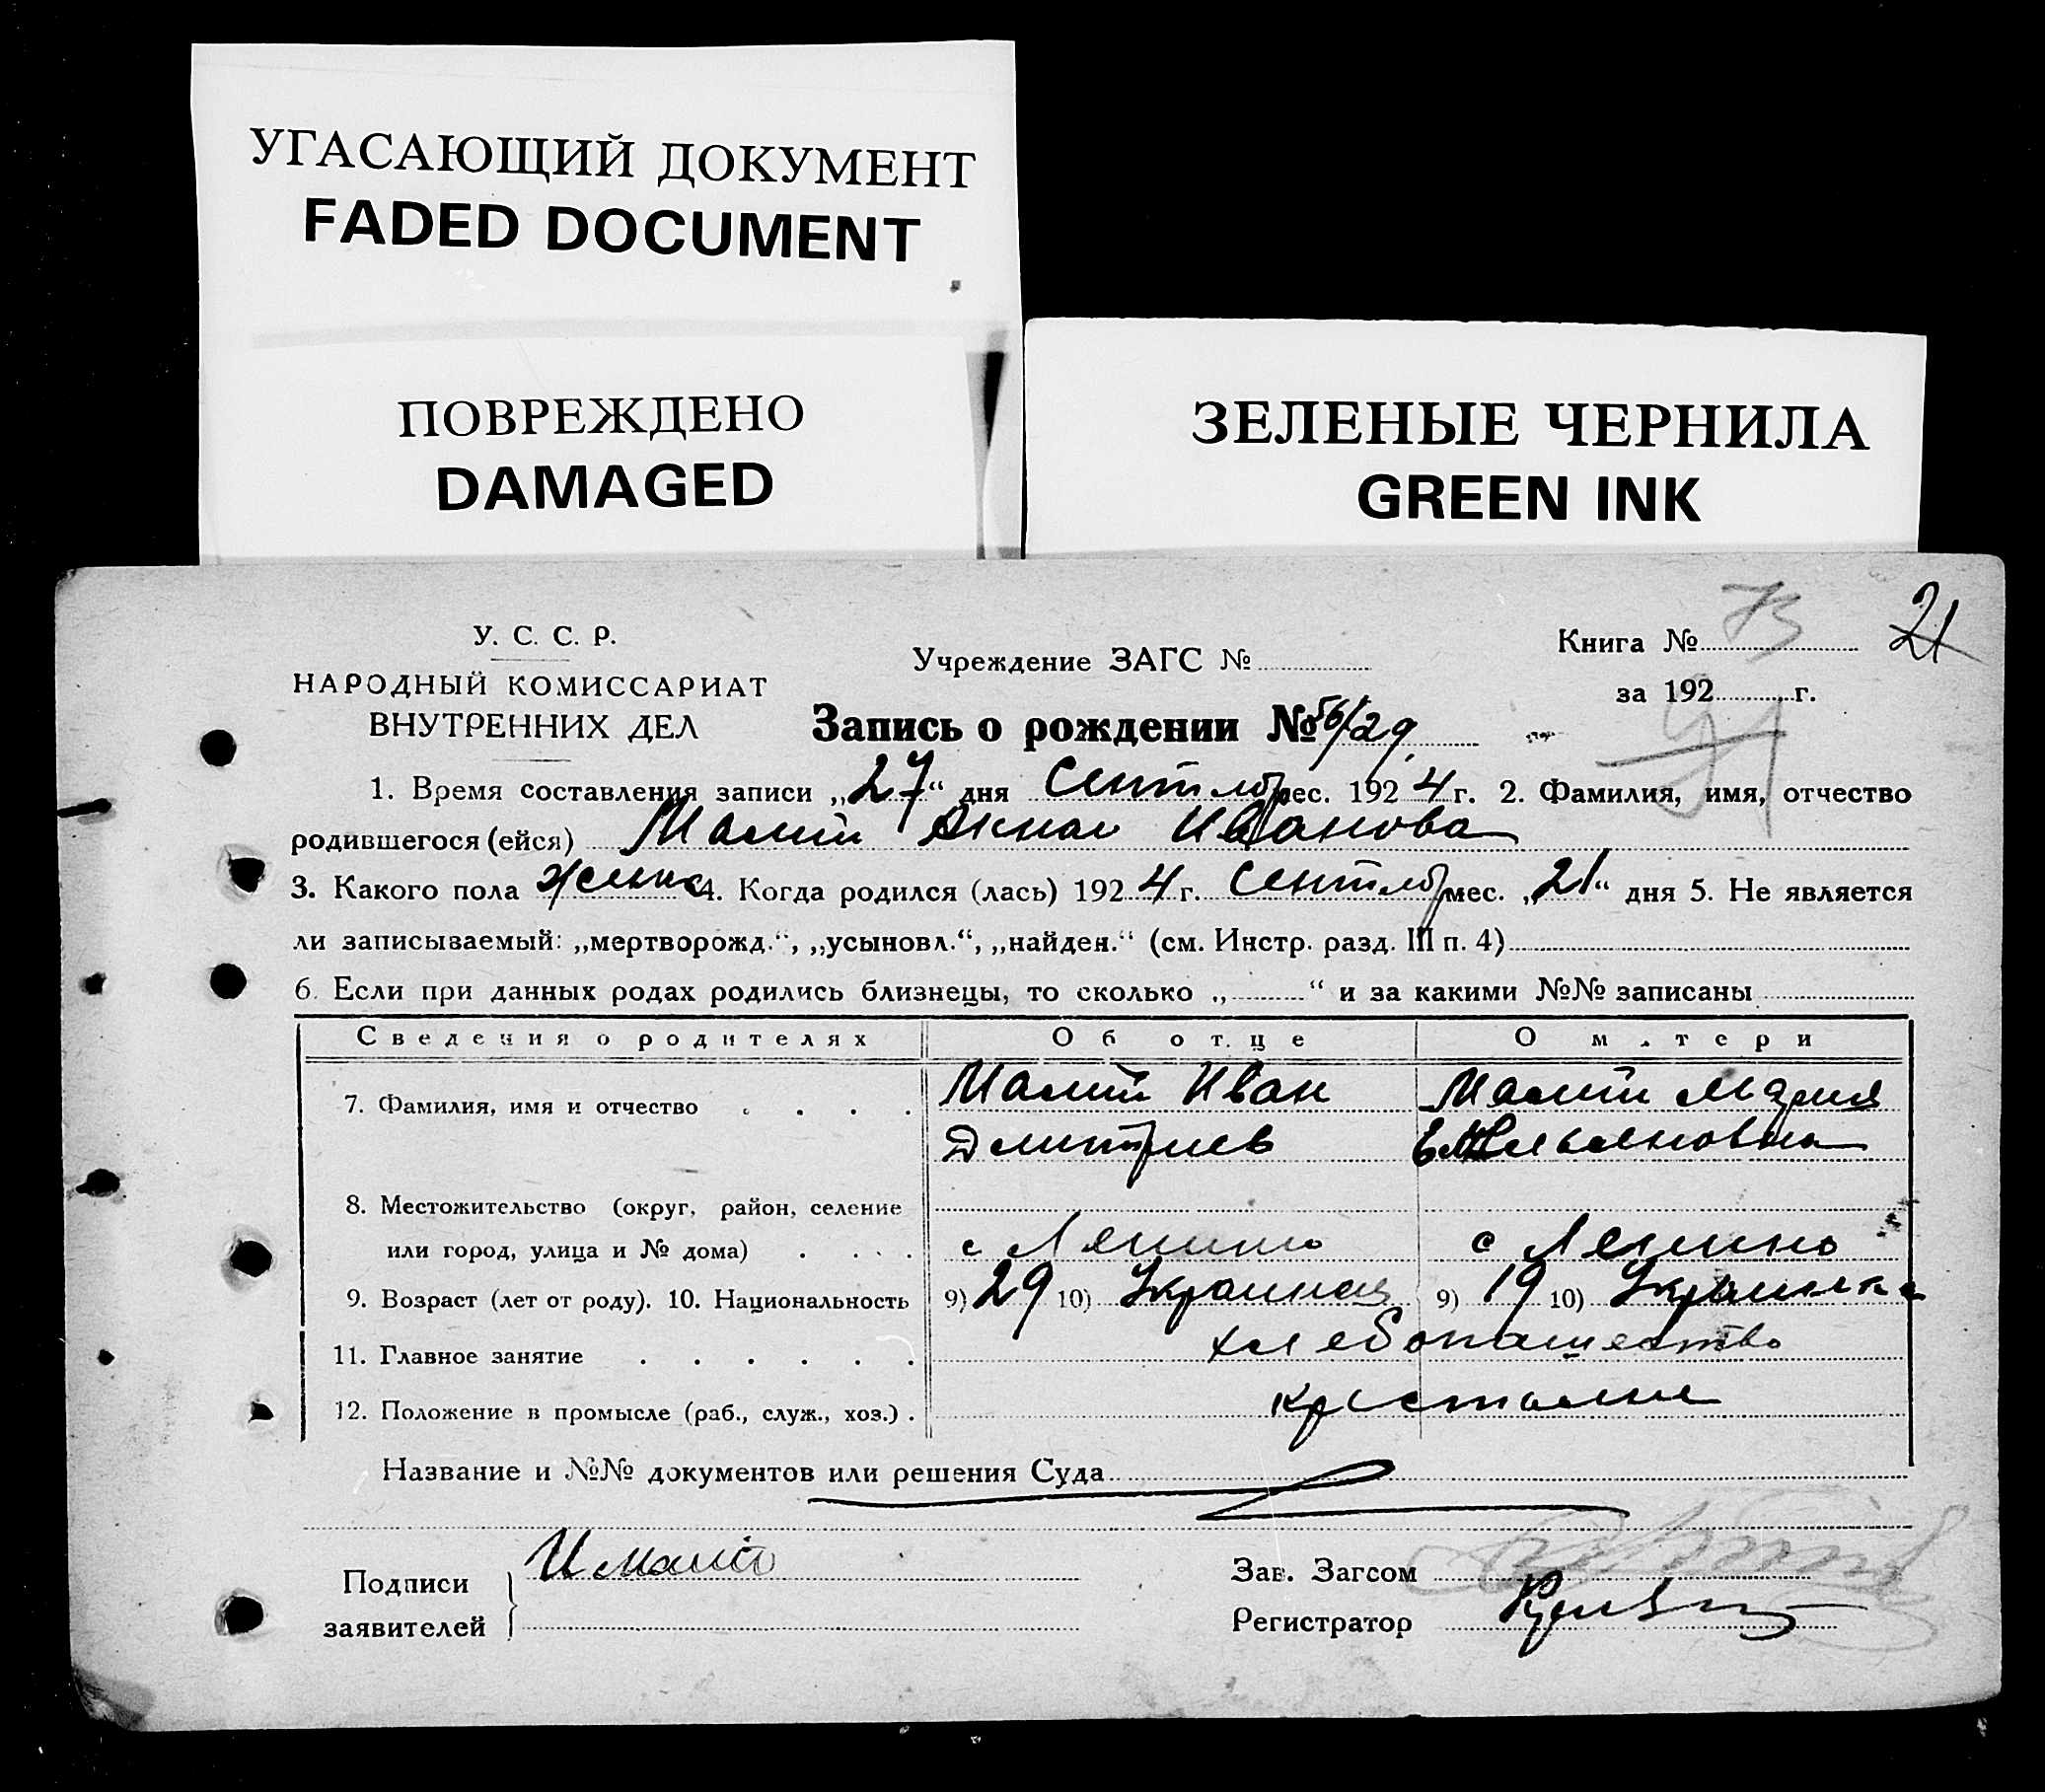 УГАСАЮЩИЙ ДОКУМЕНТ
FADED DOCUMENT
ПОВРЕЖДЕНО
DAMAGED
ЗЕЛЕНЫЕ ЧЕРНИЛА
GREEN INK
У. С. С. Р.
НАРОДНЫЙ КОМИССАРИАТ
ВНУТРЕННИХ ДЕЛ
Учреждение ЗАГС №
Книга № 73 21
за 192 г.
Запись о рождении № 56/29
1. Время составления записи „27“ дня Сентябр мес. 1924 г. 2. Фамилия, имя, отчество
родившегося (ейся) Малий Иванова
3. Какого пола женс 4. Когда родился (лась) 1924 г. Сентябр мес. „21“ дня 5. Не является
ли записываемый: „мертворожд.“, „усыновл.“, „найден.“ (см. Инстр. разд. III п. 4)
6. Если при данных родах родились близнецы, то сколько „ “ и за какими №№ записаны
Сведения о родителях Об отце О матери
7. Фамилия, имя и отчество Малий Иван Малий Мария
Дмитриев Емельяновна
8. Местожительство (округ, район, селение
или город, улица и № дома) с Ленино с Ленино
9. Возраст (лет от роду). 10. Национальность 9) 29 10) Украинец 9) 19 10) Украинка
11. Главное занятие хлебопашество
12. Положение в промысле (раб., служ., хоз.) крестьяне
Название и №№ документов или решения Суда
Подписи
заявителей
И Малий
Зав. Загсом
Регистратор